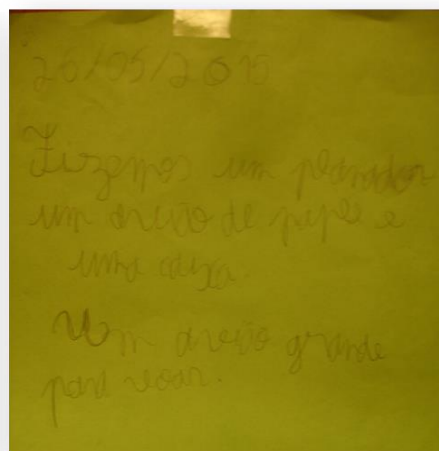 26/05/2010
Fizemos um planador
um avião de paple e
uma caixa.
Um avião grande
para voar.